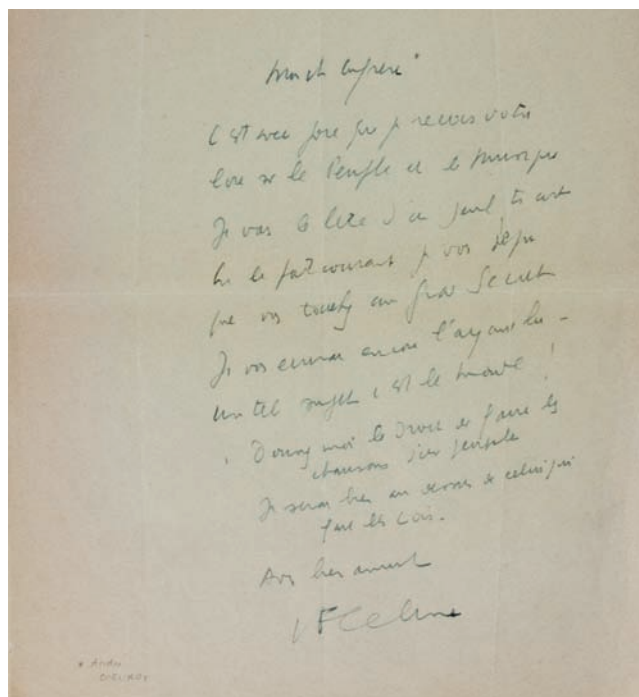 Mon ch confrère*
C'est avec joie que je reçois votre
livre sur le Peuple et la musique
Je vais le lire d'un seul
que vous touchez au grand secret
Je vous écrirai encore l'ayant lu -
Un tel sujet c'est le monde !
" Donnez moi le droit de faire les
chansons d'un peuple
Je serai bien au dessus de celui qui
fait les lois.
A vous bien amicalt
LF Celine
* André
Coeuroy